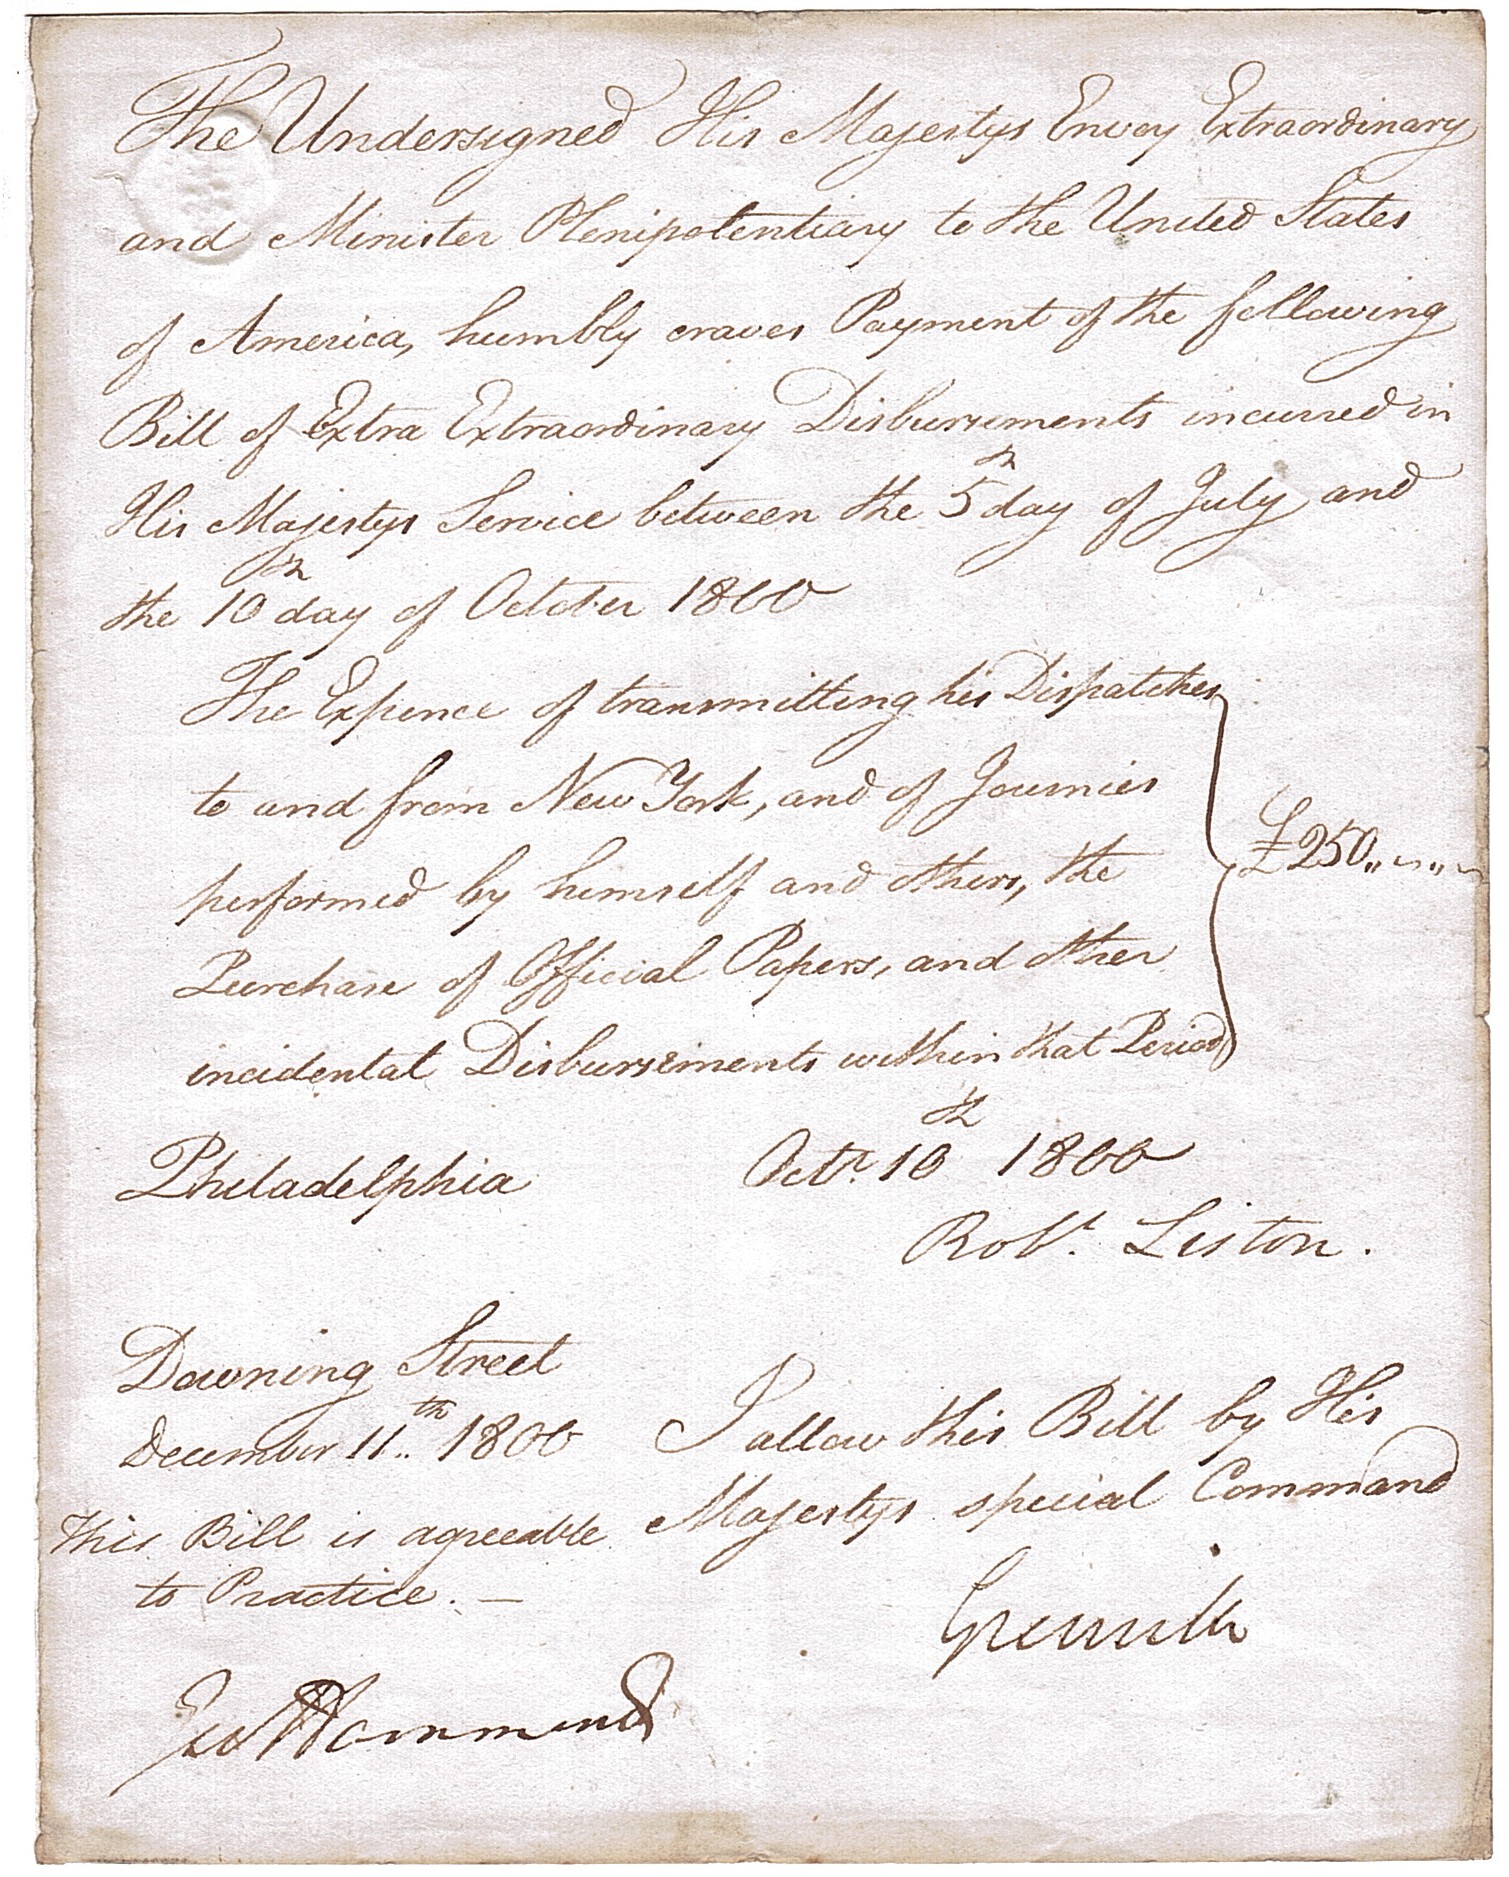 The Undersigned His Majestys Envoy Extraordinary
and Minister Plenipotentiary to the United States
of America, humbly craves Payment of the following
Bill of Extra Extraordinary Disbursements incurred in
His Majestys Service between the 5th day of July and
the 10th day of October 1800
The Expence of transmitting his Dispatches
to and from New York, and of Journies
performed by himself and others, the
Purchase of Official Papers, and other
incidental Disbursements within that Period
£250
Philadelphia Octr. 10th 1800
Robt. Liston.
Downing Street
December 11th 1800
I allow this Bill by His
Majestys special Command
This Bill is agreeable
to Practice. —
Grenville
Geo Hammond